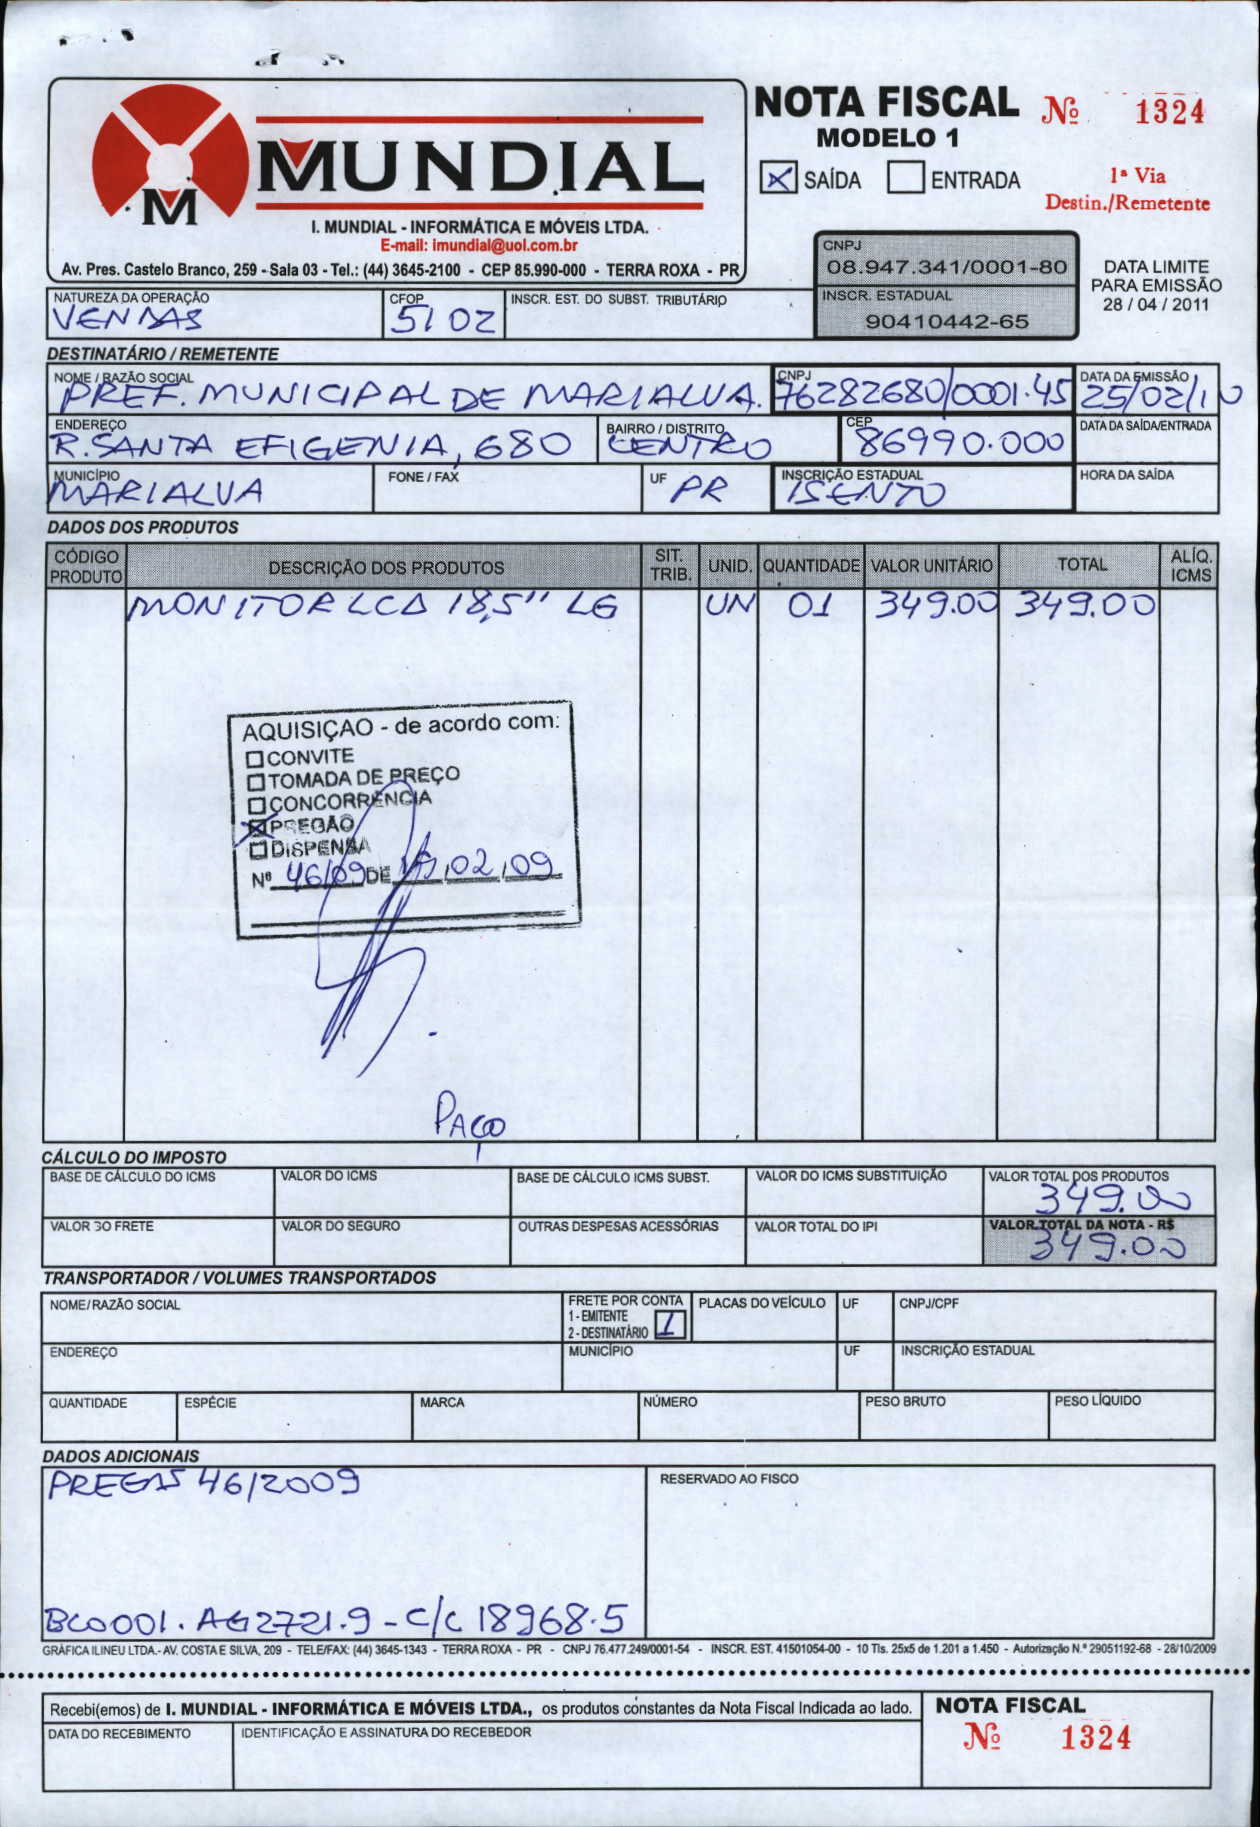 MUNDIAL
M
I. MUNDIAL - INFORMÁTICA E MÓVEIS LTDA.
E-mail: imundial@uol.com.br
Av. Pres. Castelo Branco, 259 - Sala 03 - Tel.: (44) 3645-2100 - CEP 85.990-000 - TERRA ROXA - PR
NOTA FISCAL Nº 1324
MODELO 1
SAÍDA ENTRADA
1ª Via
Destin./Remetente
CNPJ
08.947.341/0001-80
INSCR. ESTADUAL
90410442-65
DATA LIMITE
PARA EMISSÃO
28 / 04 / 2011
NATUREZA DA OPERAÇÃO CFOP INSCR. EST. DO SUBST. TRIBUTÁRIO
VENDAS 5102
DESTINATÁRIO / REMETENTE
NOME / RAZÃO SOCIAL CNPJ DATA DA EMISSÃO
PREF. MUNICIPAL DE MARIALVA. 76282680/0001.45 25/02/10
ENDEREÇO BAIRRO / DISTRITO CEP DATA DA SAÍDA/ENTRADA
R. SANTA EFIGENIA, 680 CENTRO 86990.000
MUNICÍPIO FONE / FAX UF INSCRIÇÃO ESTADUAL HORA DA SAÍDA
MARIALVA PR ISENTO
DADOS DOS PRODUTOS
CÓDIGO PRODUTO DESCRIÇÃO DOS PRODUTOS SIT. TRIB. UNID. QUANTIDADE VALOR UNITÁRIO TOTAL ALÍQ. ICMS
MONITOR LCD 18,5" LG UN 01 349.00 349.00
AQUISIÇAO - de acordo com:
CONVITE
TOMADA DE PREÇO
CONCORRENCIA
PREGÃO
DISPENSA
Nº 46/09 DE 19,02,09
PAÇO
CÁLCULO DO IMPOSTO
BASE DE CÁLCULO DO ICMS VALOR DO ICMS BASE DE CÁLCULO ICMS SUBST. VALOR DO ICMS SUBSTITUIÇÃO VALOR TOTAL DOS PRODUTOS
349.00
VALOR DO FRETE VALOR DO SEGURO OUTRAS DESPESAS ACESSÓRIAS VALOR TOTAL DO IPI VALOR TOTAL DA NOTA - R$
349.00
TRANSPORTADOR / VOLUMES TRANSPORTADOS
NOME/RAZÃO SOCIAL FRETE POR CONTA PLACAS DO VEÍCULO UF CNPJ/CPF
1 - EMITENTE
2 - DESTINATÁRIO 1
ENDEREÇO MUNICÍPIO UF INSCRIÇÃO ESTADUAL
QUANTIDADE ESPÉCIE MARCA NÚMERO PESO BRUTO PESO LÍQUIDO
DADOS ADICIONAIS
PREGÃO 46/2009 RESERVADO AO FISCO
BCO001. AG2721.9 - C/C 18968.5
GRÁFICA ILINEU LTDA.- AV. COSTA E SILVA, 209 - TELE/FAX: (44) 3645-1343 - TERRA ROXA - PR - CNPJ 76.477.249/0001-54 - INSCR. EST. 41501054-00 - 10 Tls. 25x5 de 1.201 a 1.450 - Autorização N.º 29051192-68 - 28/10/2009
Recebi(emos) de I. MUNDIAL - INFORMÁTICA E MÓVEIS LTDA., os produtos constantes da Nota Fiscal Indicada ao lado.
DATA DO RECEBIMENTO IDENTIFICAÇÃO E ASSINATURA DO RECEBEDOR
NOTA FISCAL
Nº 1324